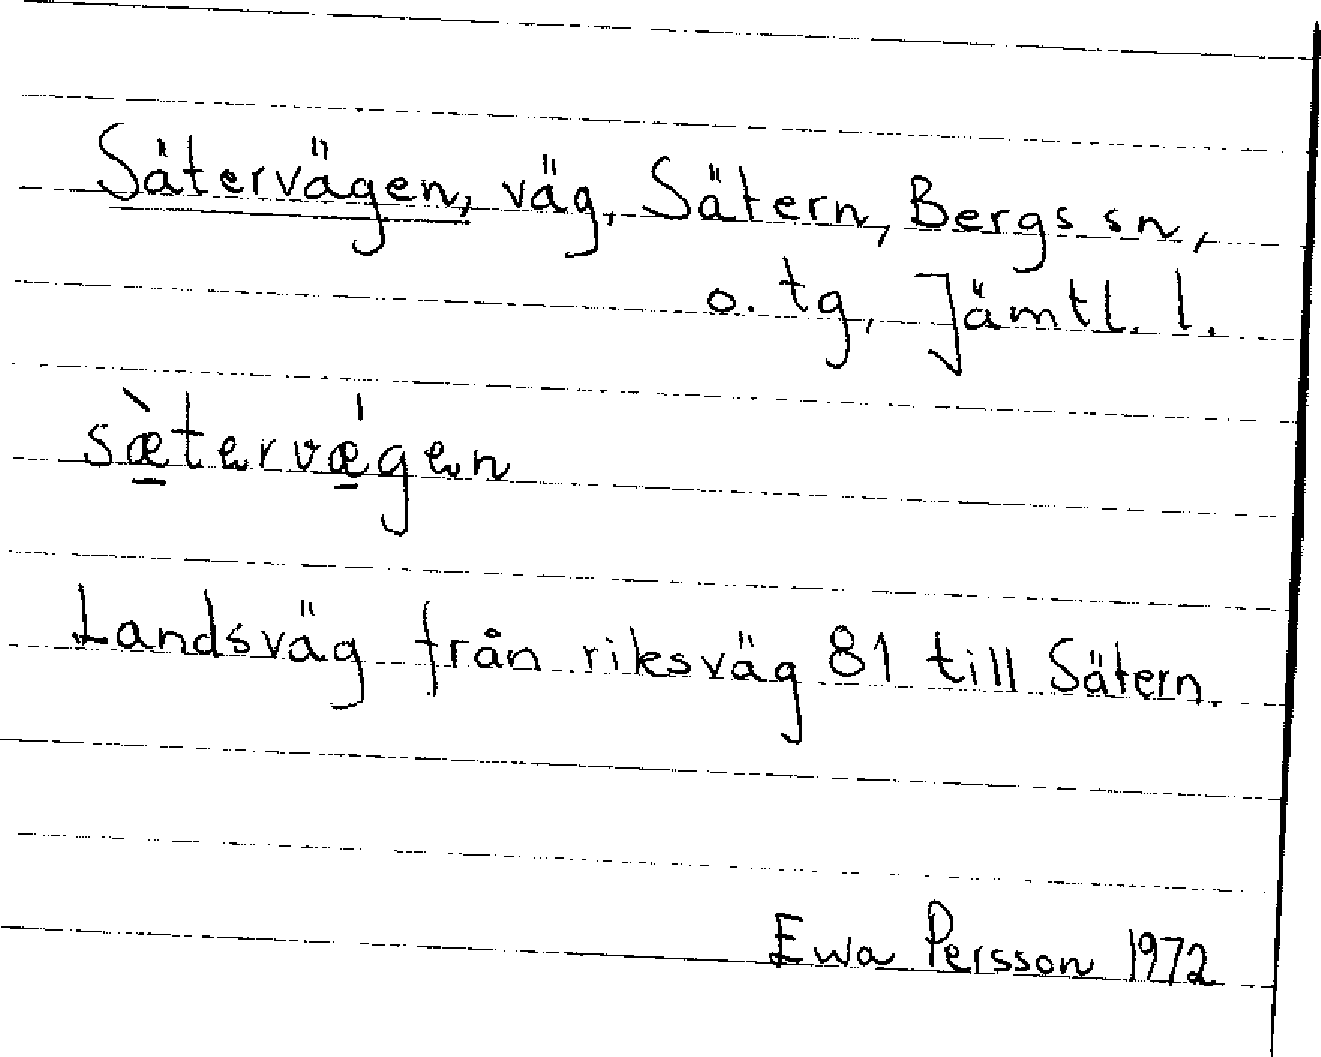 Sätervägen, väg, Sätern, Bergs sn,
o. tg, Jämtl. l.
sæ̀tervǽgen
Landsväg från riksväg 81 till Sätern.
Ewa Persson 1972